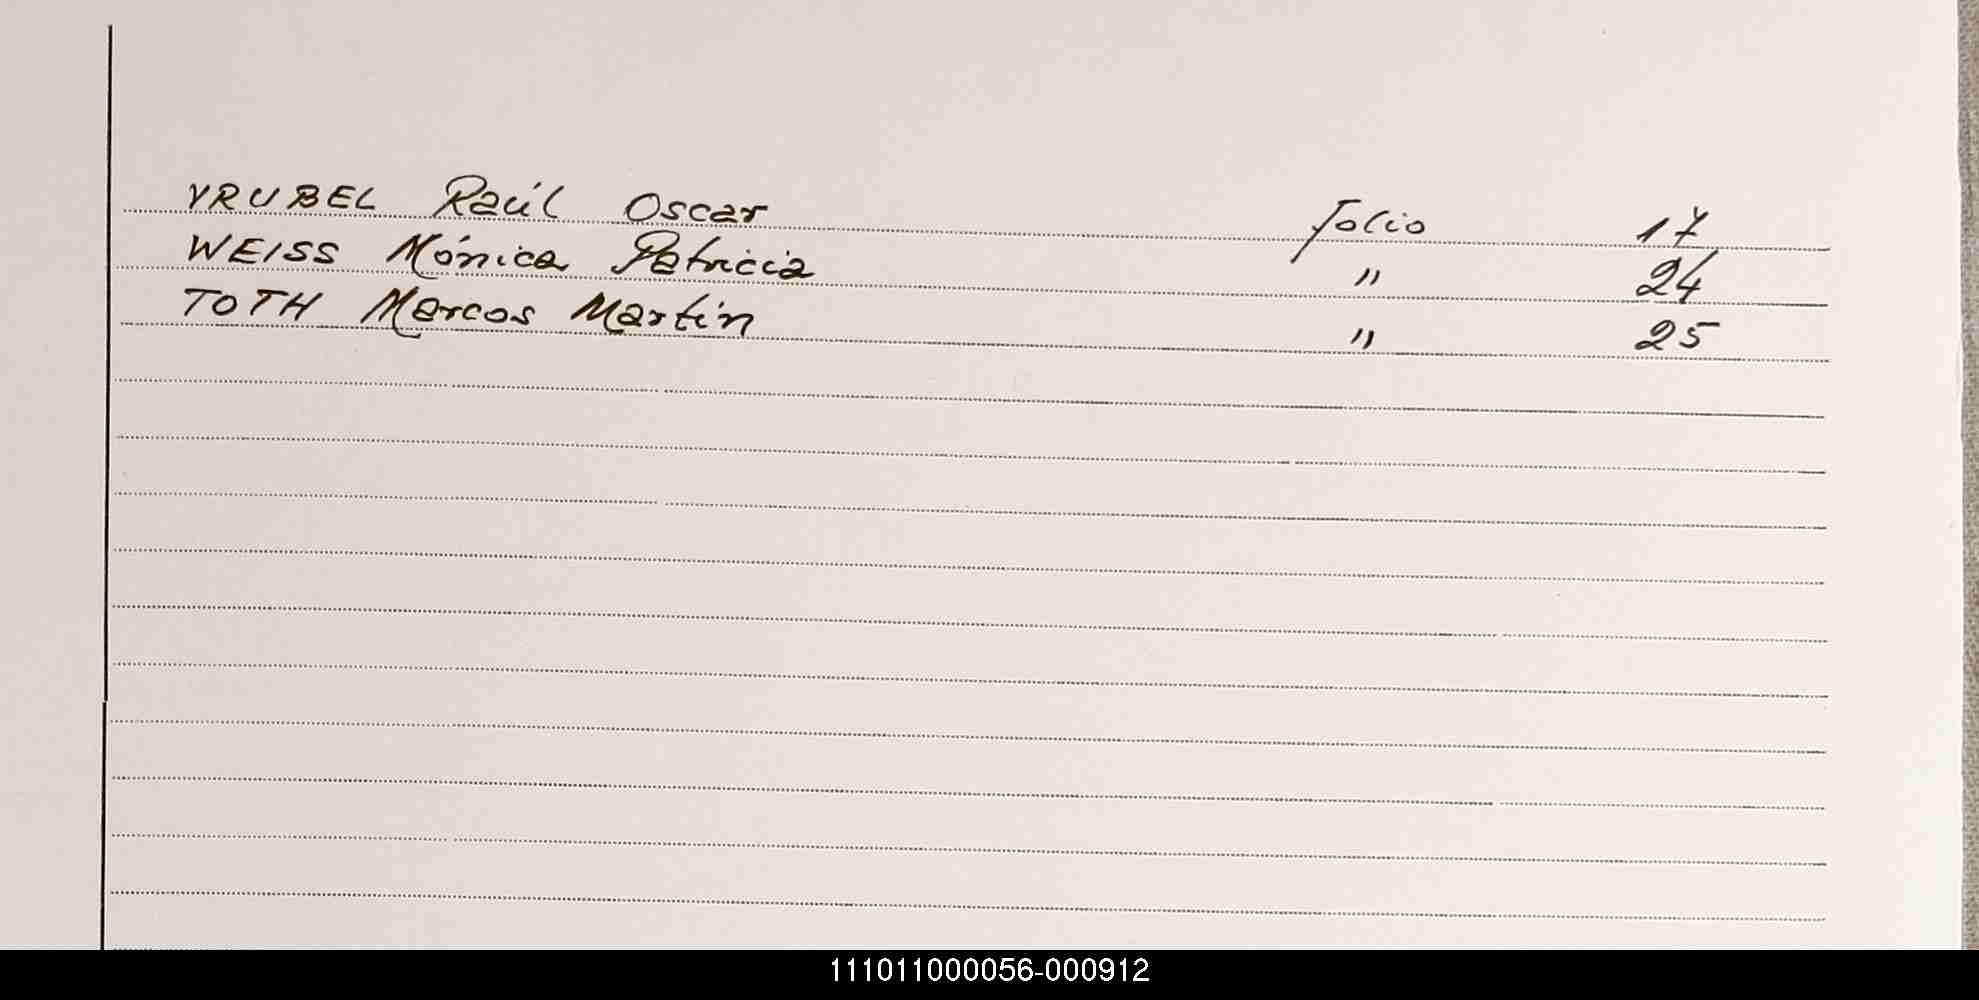 VRUBEL Raúl Oscar folio 17
WEISS Mónica Patricia " 24
TOTH Marcos Martín " 25
111011000056-000912